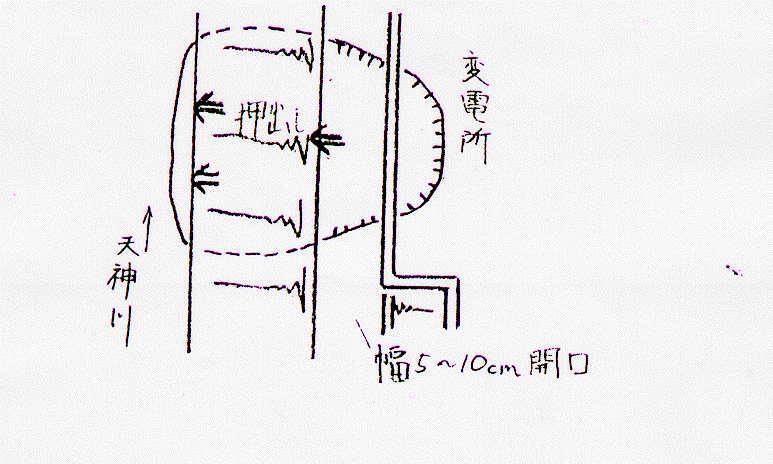 変電所
押出し
天神川
幅5~10cm開口